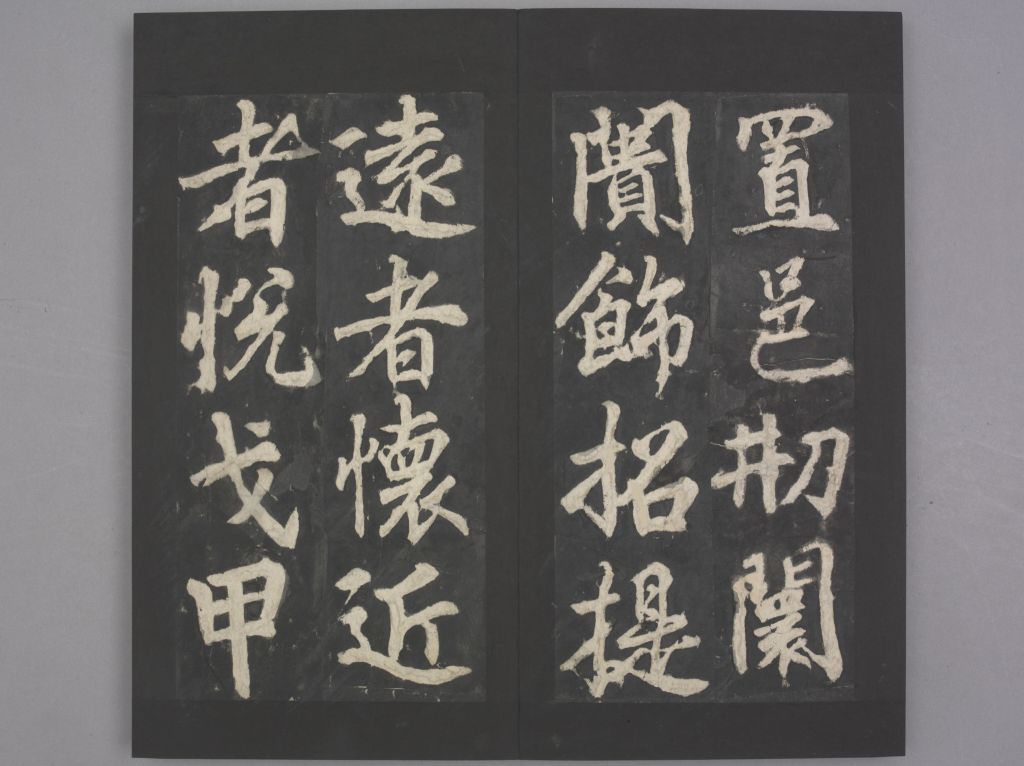 置邑刱闤
闠飾招提
遠者懷近
者悦戈甲